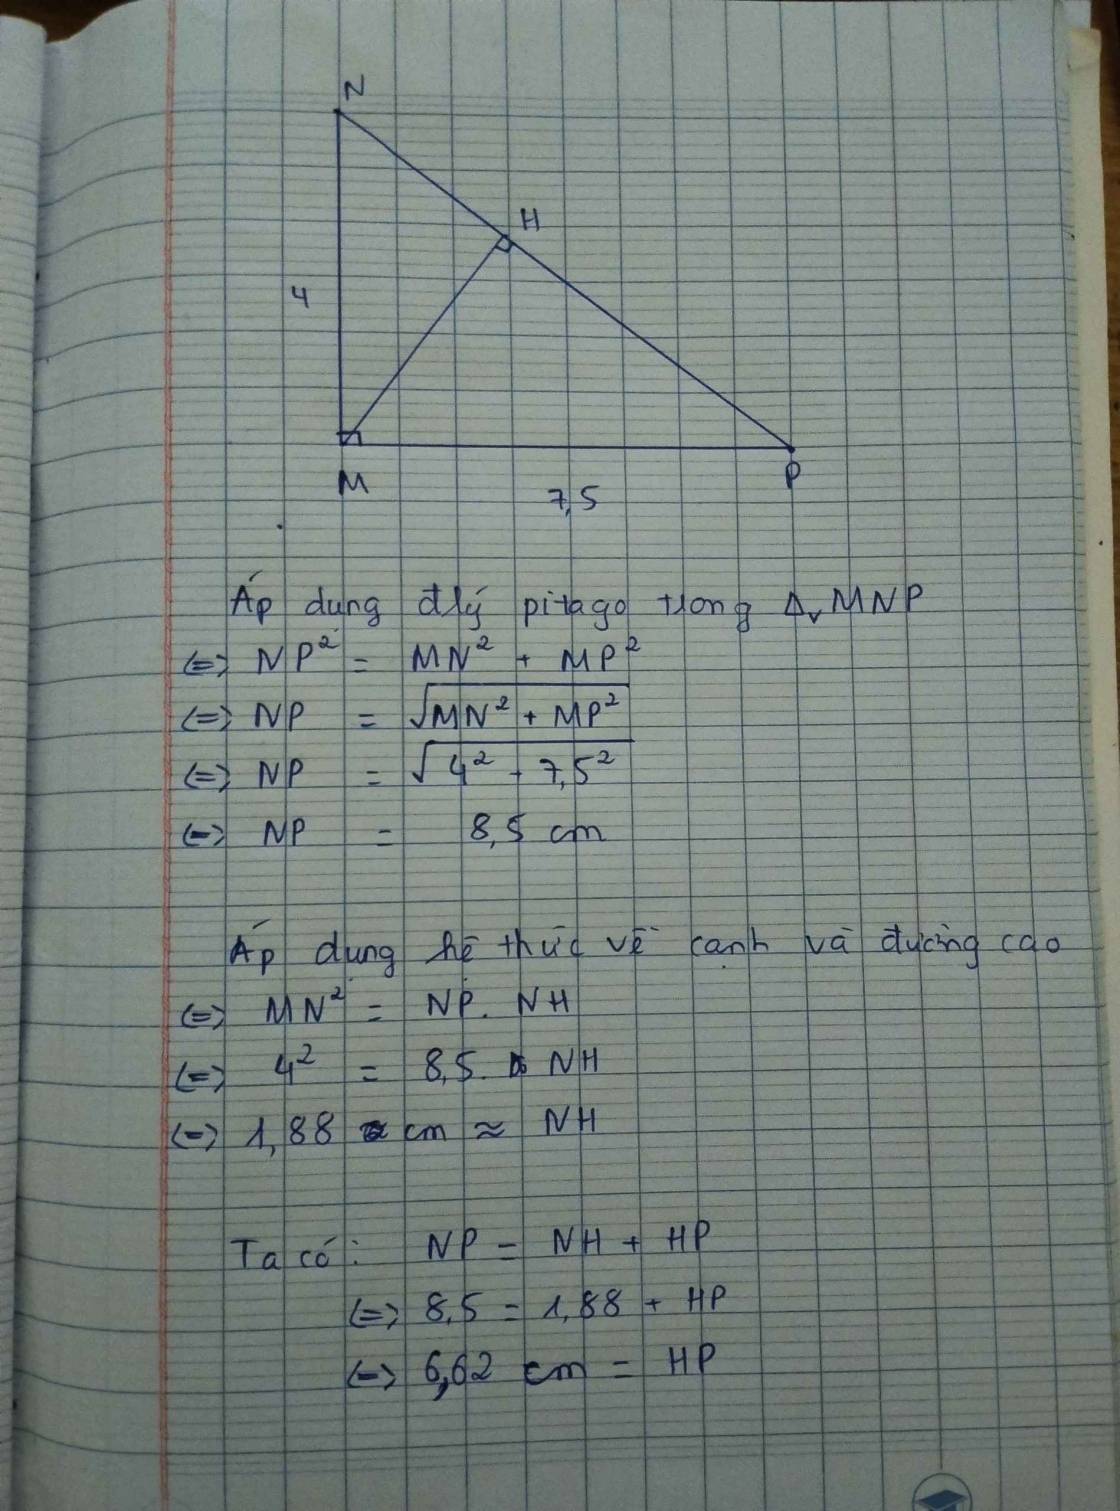 N
H
4
M
P
7,5
Áp dụng đlý pitago trong Δv MNP
<=> NP² = MN² + MP²
<=> NP = √MN² + MP²
<=> NP = √4² + 7,5²
<=> NP = 8,5 cm
Áp dụng hệ thức về cạnh và đường cao
<=> MN² = NP. NH
<=> 4² = 8,5. NH
<=> 1,88 cm ≈ NH
Ta có: NP = NH + HP
<=> 8,5 = 1,88 + HP
<=> 6,62 cm = HP